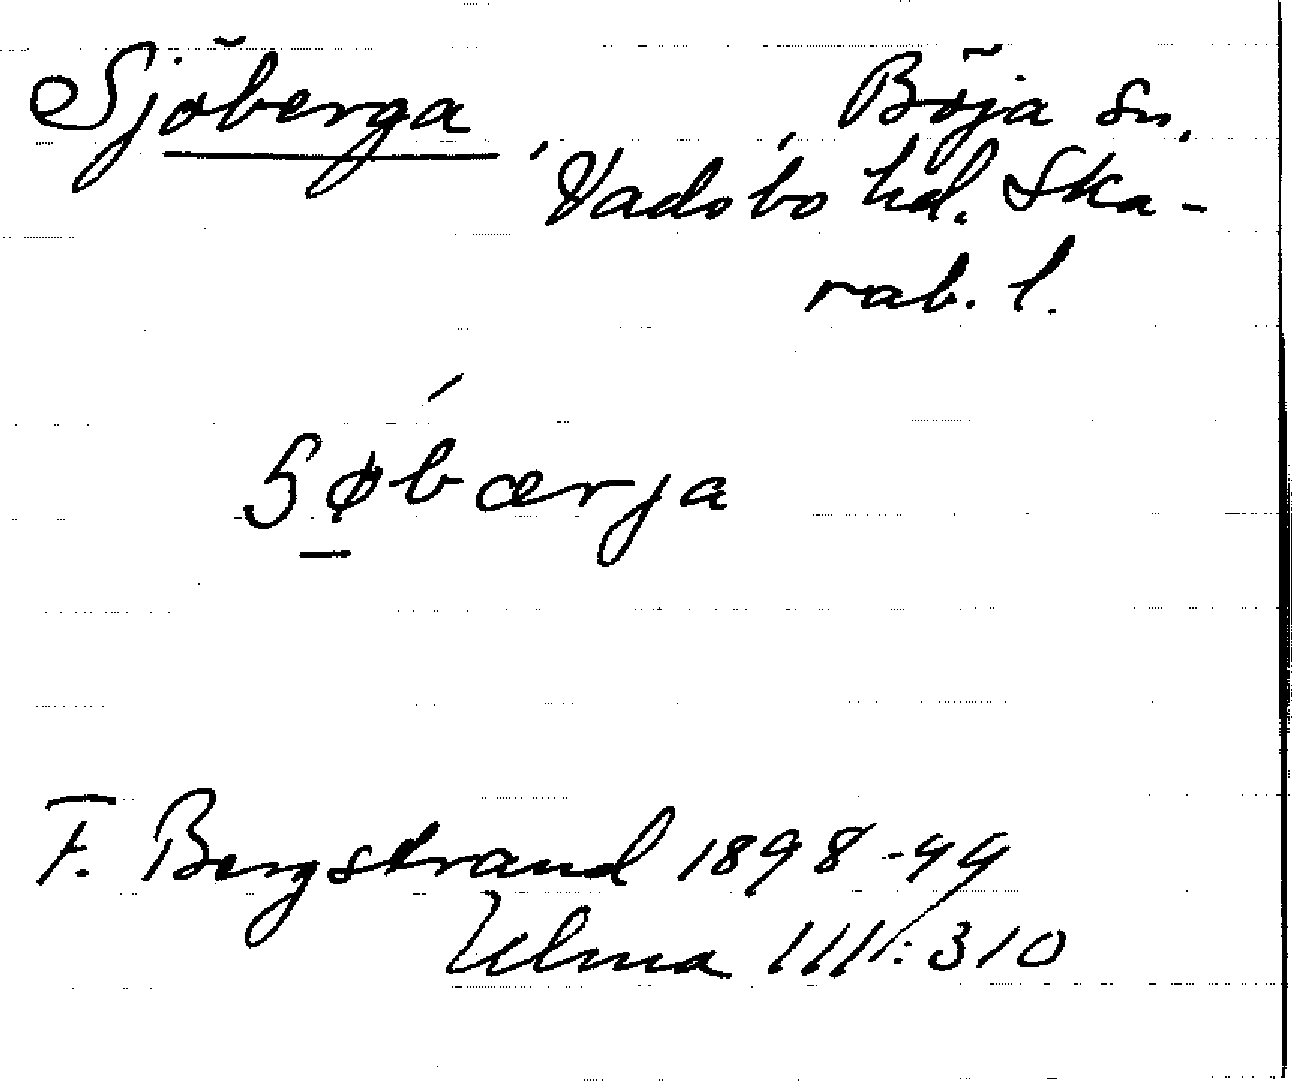 Sjöberga, Böja sn,
Vadsbo hd. Ska-
rab. l.
Søbærja
F. Bergstrand 1898-99
Ulma 111:310